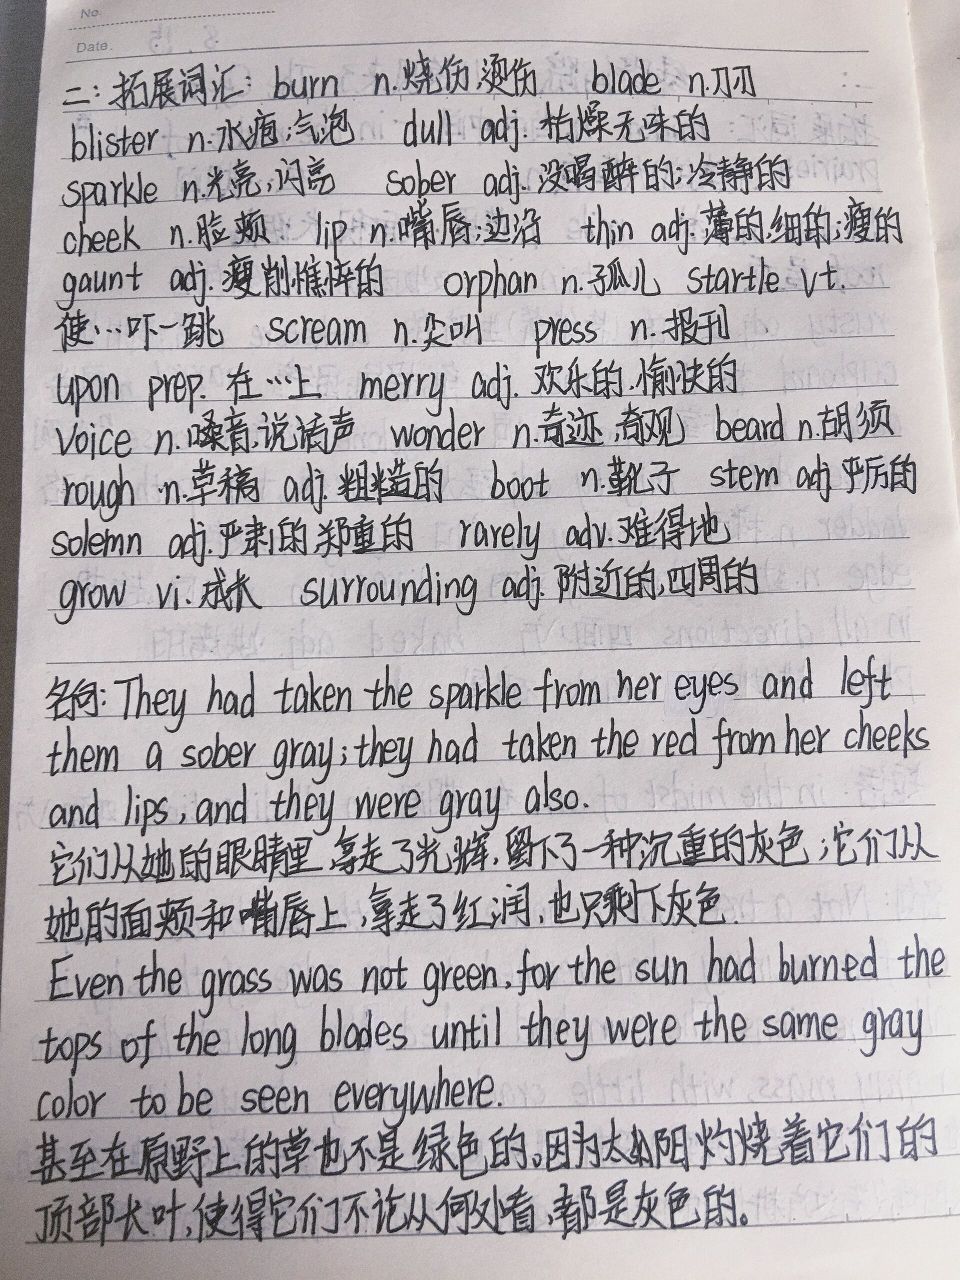 No.
Date.
二:拓展词汇: burn n.烧伤,烫伤 blade n.刀刃
blister n.水疱;气泡 dull adj. 枯燥无味的
sparkle n.光亮;闪亮 sober adj.没喝醉的;冷静的
cheek n.脸颊 lip n.嘴唇;边沿 thin adj.薄的;细的;瘦的
gaunt adj.瘦削憔悴的 orphan n.孤儿 startle vt.
使…吓一跳 scream n.尖叫 press n.报刊
upon prep. 在…上 merry adj. 欢乐的.愉快的
voice n.嗓音,说话声 wonder n.奇迹,奇观 beard n.胡须
rough n.草稿 adj.粗糙的 boot n.靴子 stern adj.严厉的
solemn adj.严肃的.郑重的 rarely adv.难得地
grow vi.成长 surrounding adj.附近的,四周的
名句: They had taken the sparkle from her eyes and left
them a sober gray; they had taken the red from her cheeks
and lips, and they were gray also.
它们从她的眼睛里,拿走了光辉,留下了一种沉重的灰色;它们从
她的面颊和嘴唇上,拿走了红润,也只剩下灰色.
Even the grass was not green, for the sun had burned the
tops of the long blades until they were the same gray
color to be seen everywhere.
甚至在原野上的草也不是绿色的。因为太阳灼烧着它们的
顶部长叶,使得它们不论从何处看,都是灰色的。